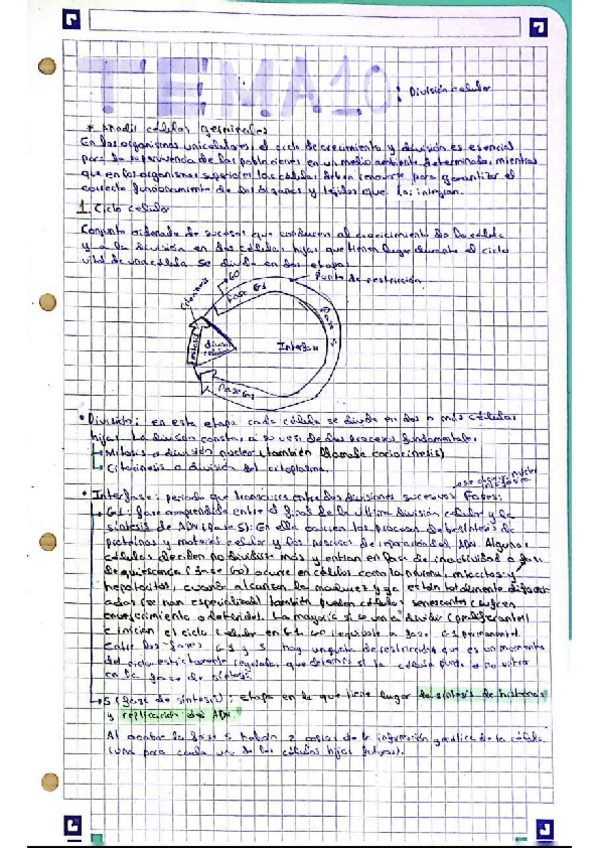 TEMA 10: División celular
* Añadir células germinales
En los organismos unicelulares el ciclo de crecimiento y división es esencial
para la supervivencia de las poblaciones en un medio ambiente determinado, mientras
que en los organismos superiores las células deben renovarse para garantizar el
correcto funcionamiento de los órganos y tejidos que la integran.
1. Ciclo celular
Conjunto ordenado de sucesos que conducen al crecimiento de la célula
y a la división en dos células hijas que tienen lugar durante el ciclo
vital de una célula se divide en dos etapas:
G0
Punto de restricción
Citocinesis
Fase G1
Fase S
mitosis
división celular
Interfase
Fase G2
• División: en esta etapa cada célula se divide en dos o más células
hijas. La división consta a su vez de dos procesos fundamentales.
Mitosis o división nuclear (también llamada cariocinesis)
Citocinesis o división del citoplasma.
• Interfase: periodo que transcurre entre dos divisiones sucesivas. Fases:
G1: fase comprendida entre el final de la última división celular y la
síntesis de ADN (fase S). En ella ocurren los procesos de biosíntesis de
proteínas y material celular y los procesos de reparación del ADN. Algunas
células deciden no dividirse más y entran en fase de inactividad o fase
de quiescencia (fase G0) ocurre en células como la neurona, miocitos y
hepatocitos, cuando alcanzan la madurez y ya están totalmente diferenci
adas (se han especializado) también pueden células senescentes (sufren
envejecimiento o deterioro). La mayoría si se van a dividir (proliferantes)
e inician el ciclo celular en G1. G0 equivale a fase G1 permanente.
Entre las fases G1 y S hay un punto de restricción que es un momento
del ciclo estrictamente regulado, que determina si la célula puede o no entrar
en la fase de síntesis.
S (fase de síntesis): etapa en la que tiene lugar la síntesis de histonas
y replicación del ADN.
Al acabar la fase S habrán 2 copias de la información genética de la célula
(una para cada una de las células hijas futuras).